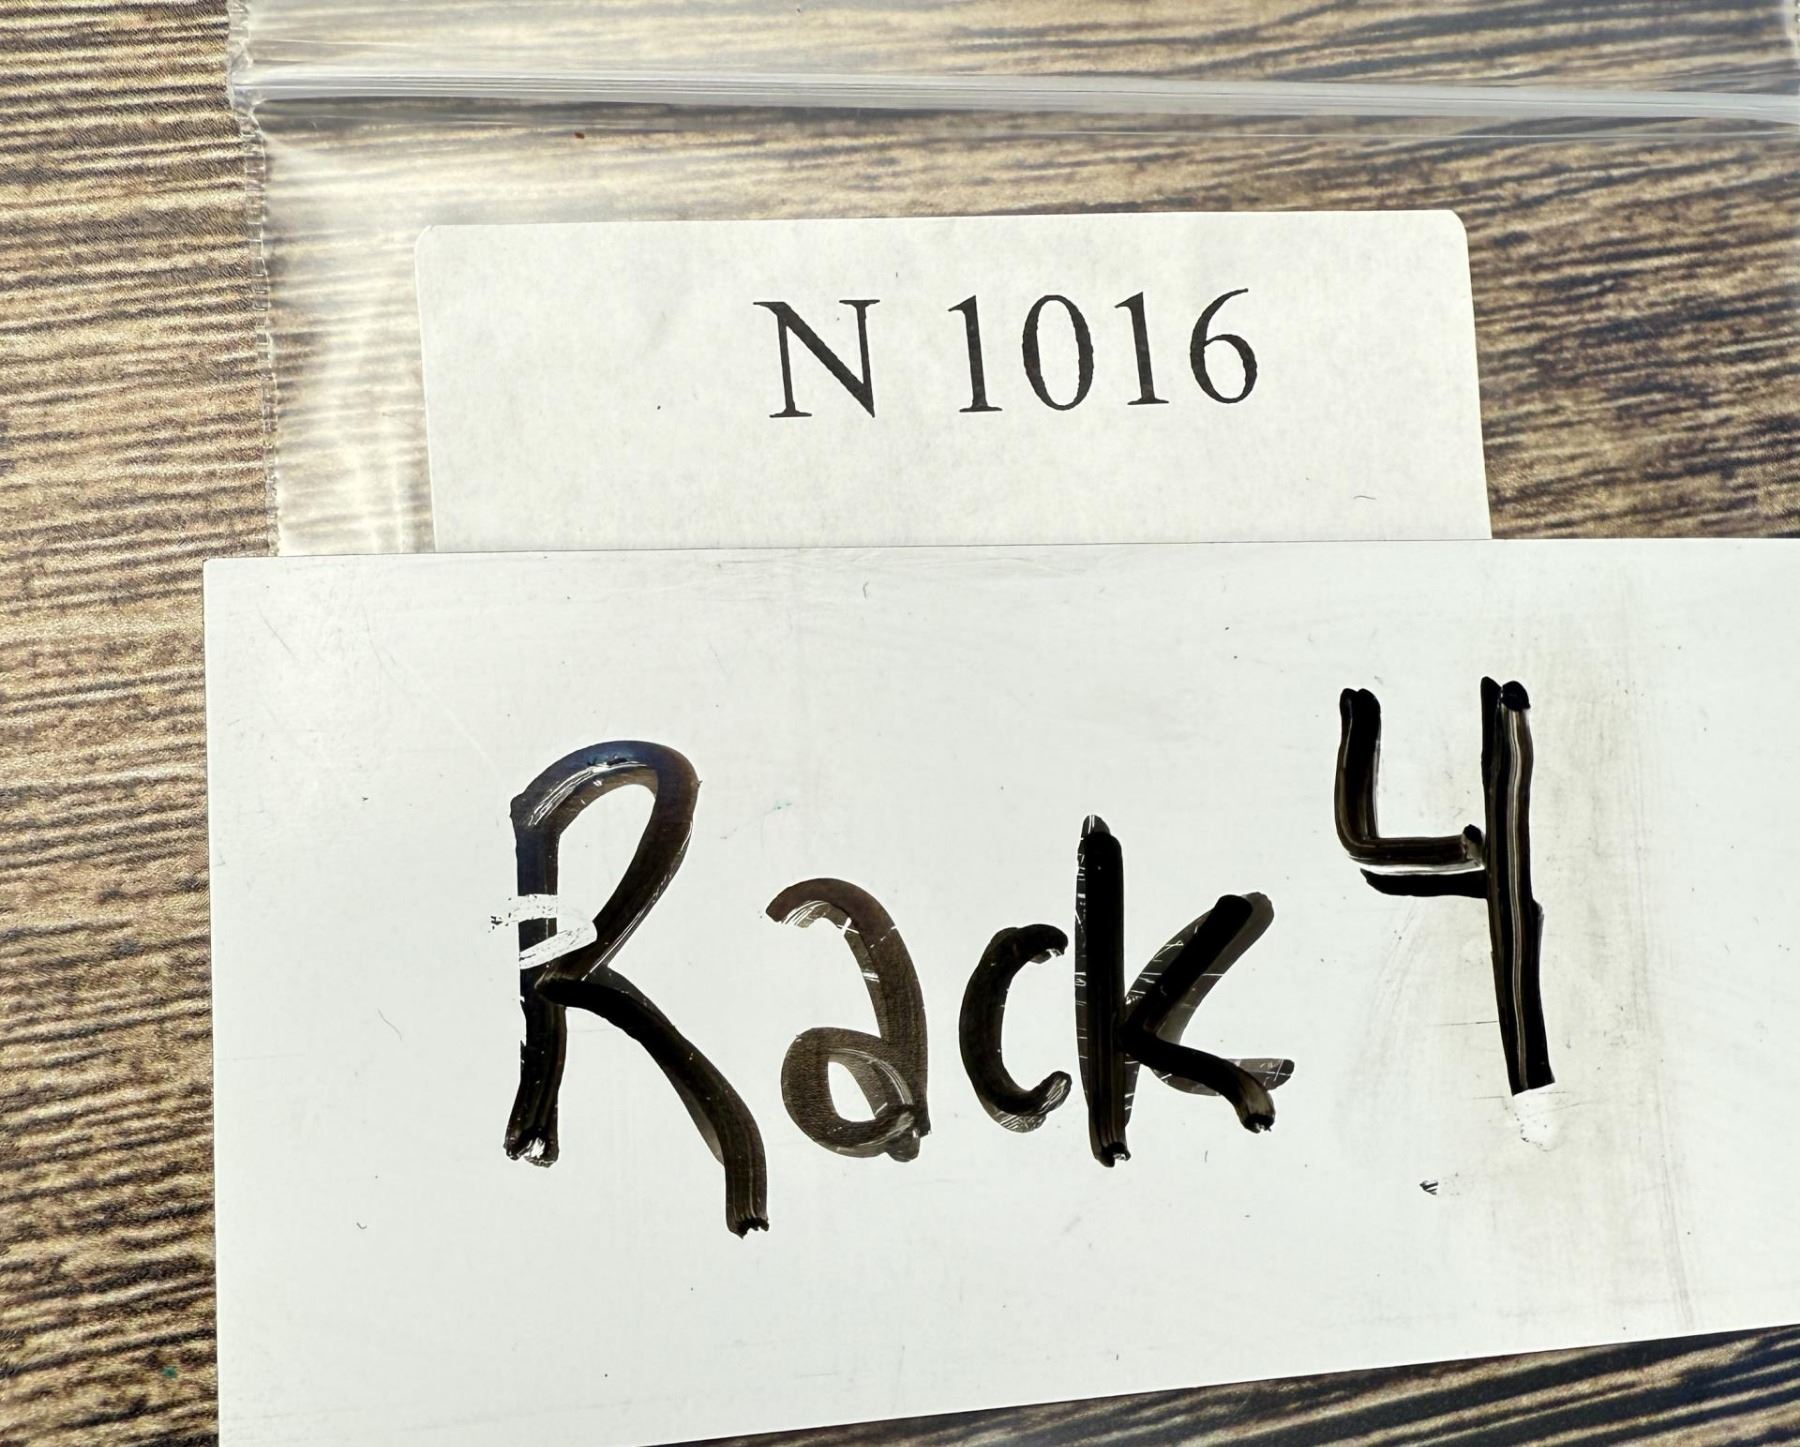 N 1016
Rack 4